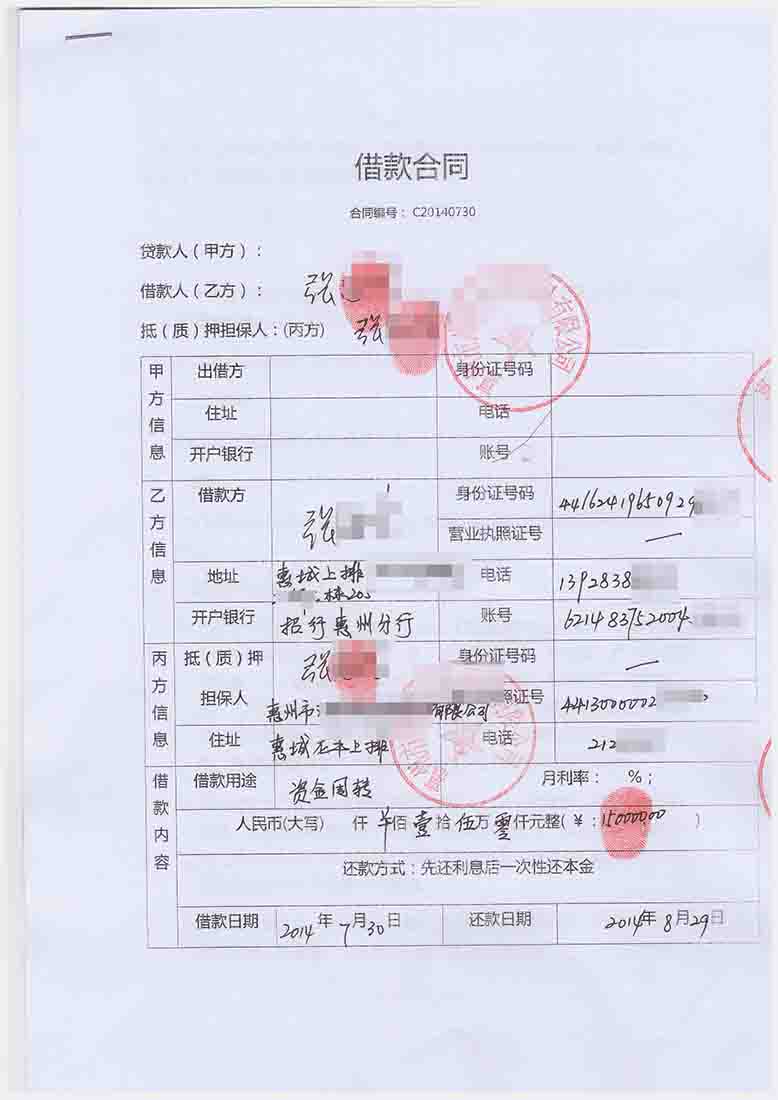 借款合同
合同编号： C20140730
贷款人（甲方）：
借款人（乙方）： 张
抵（质）押担保人：(丙方) 张
有限公司
甲方信息
出借方 身份证号码
住址 电话
开户银行 账号
乙方信息
借款方 张 身份证号码 44162419650929
营业执照证号 —
地址 惠城上排 栋200 电话 1392838
开户银行 招行惠州分行 账号 621483752004
丙方信息
抵（质）押 张 身份证号码 —
担保人 惠州市 有限公司 照证号 4413000002
住址 惠城 上排 电话 212
借款内容
借款用途 资金周转 月利率： %；
人民币(大写) 仟 佰 壹 拾 伍 万 零 仟元整(￥：150000.00 )
还款方式：先还利息后一次性还本金
借款日期 2014 年 7 月 30 日 还款日期 2014 年 8 月 29 日